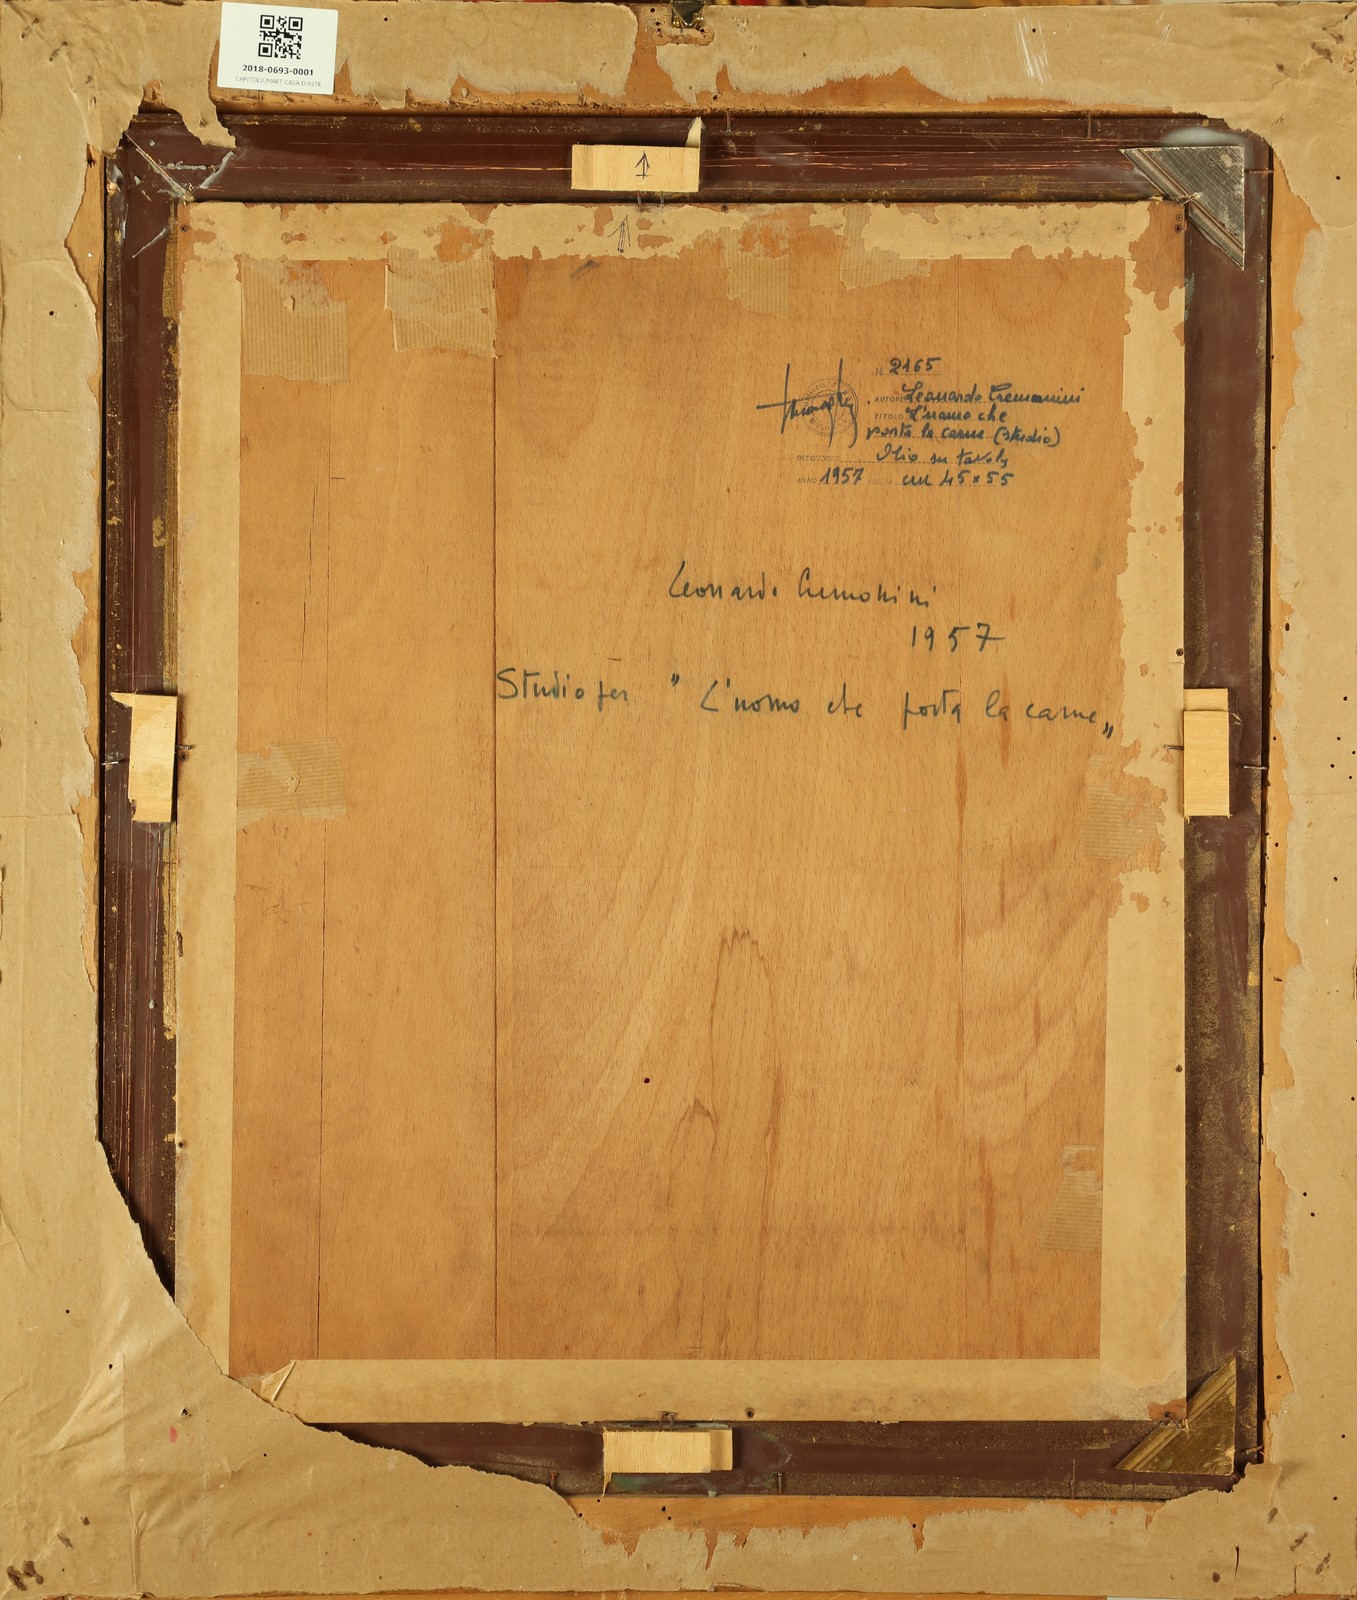 2018-0693-0001
CAPITOLIUMART CASA D'ASTE
1
N. 2165
AUTORE Leonardo Cremonini
TITOLO L'uomo che
porta la carne (studio)
DESCRIZIONE Olio su tavola
ANNO 1957 cm 45 x 55
Leonardo Cremonini
1957
Studio per " L'uomo che porta la carne„